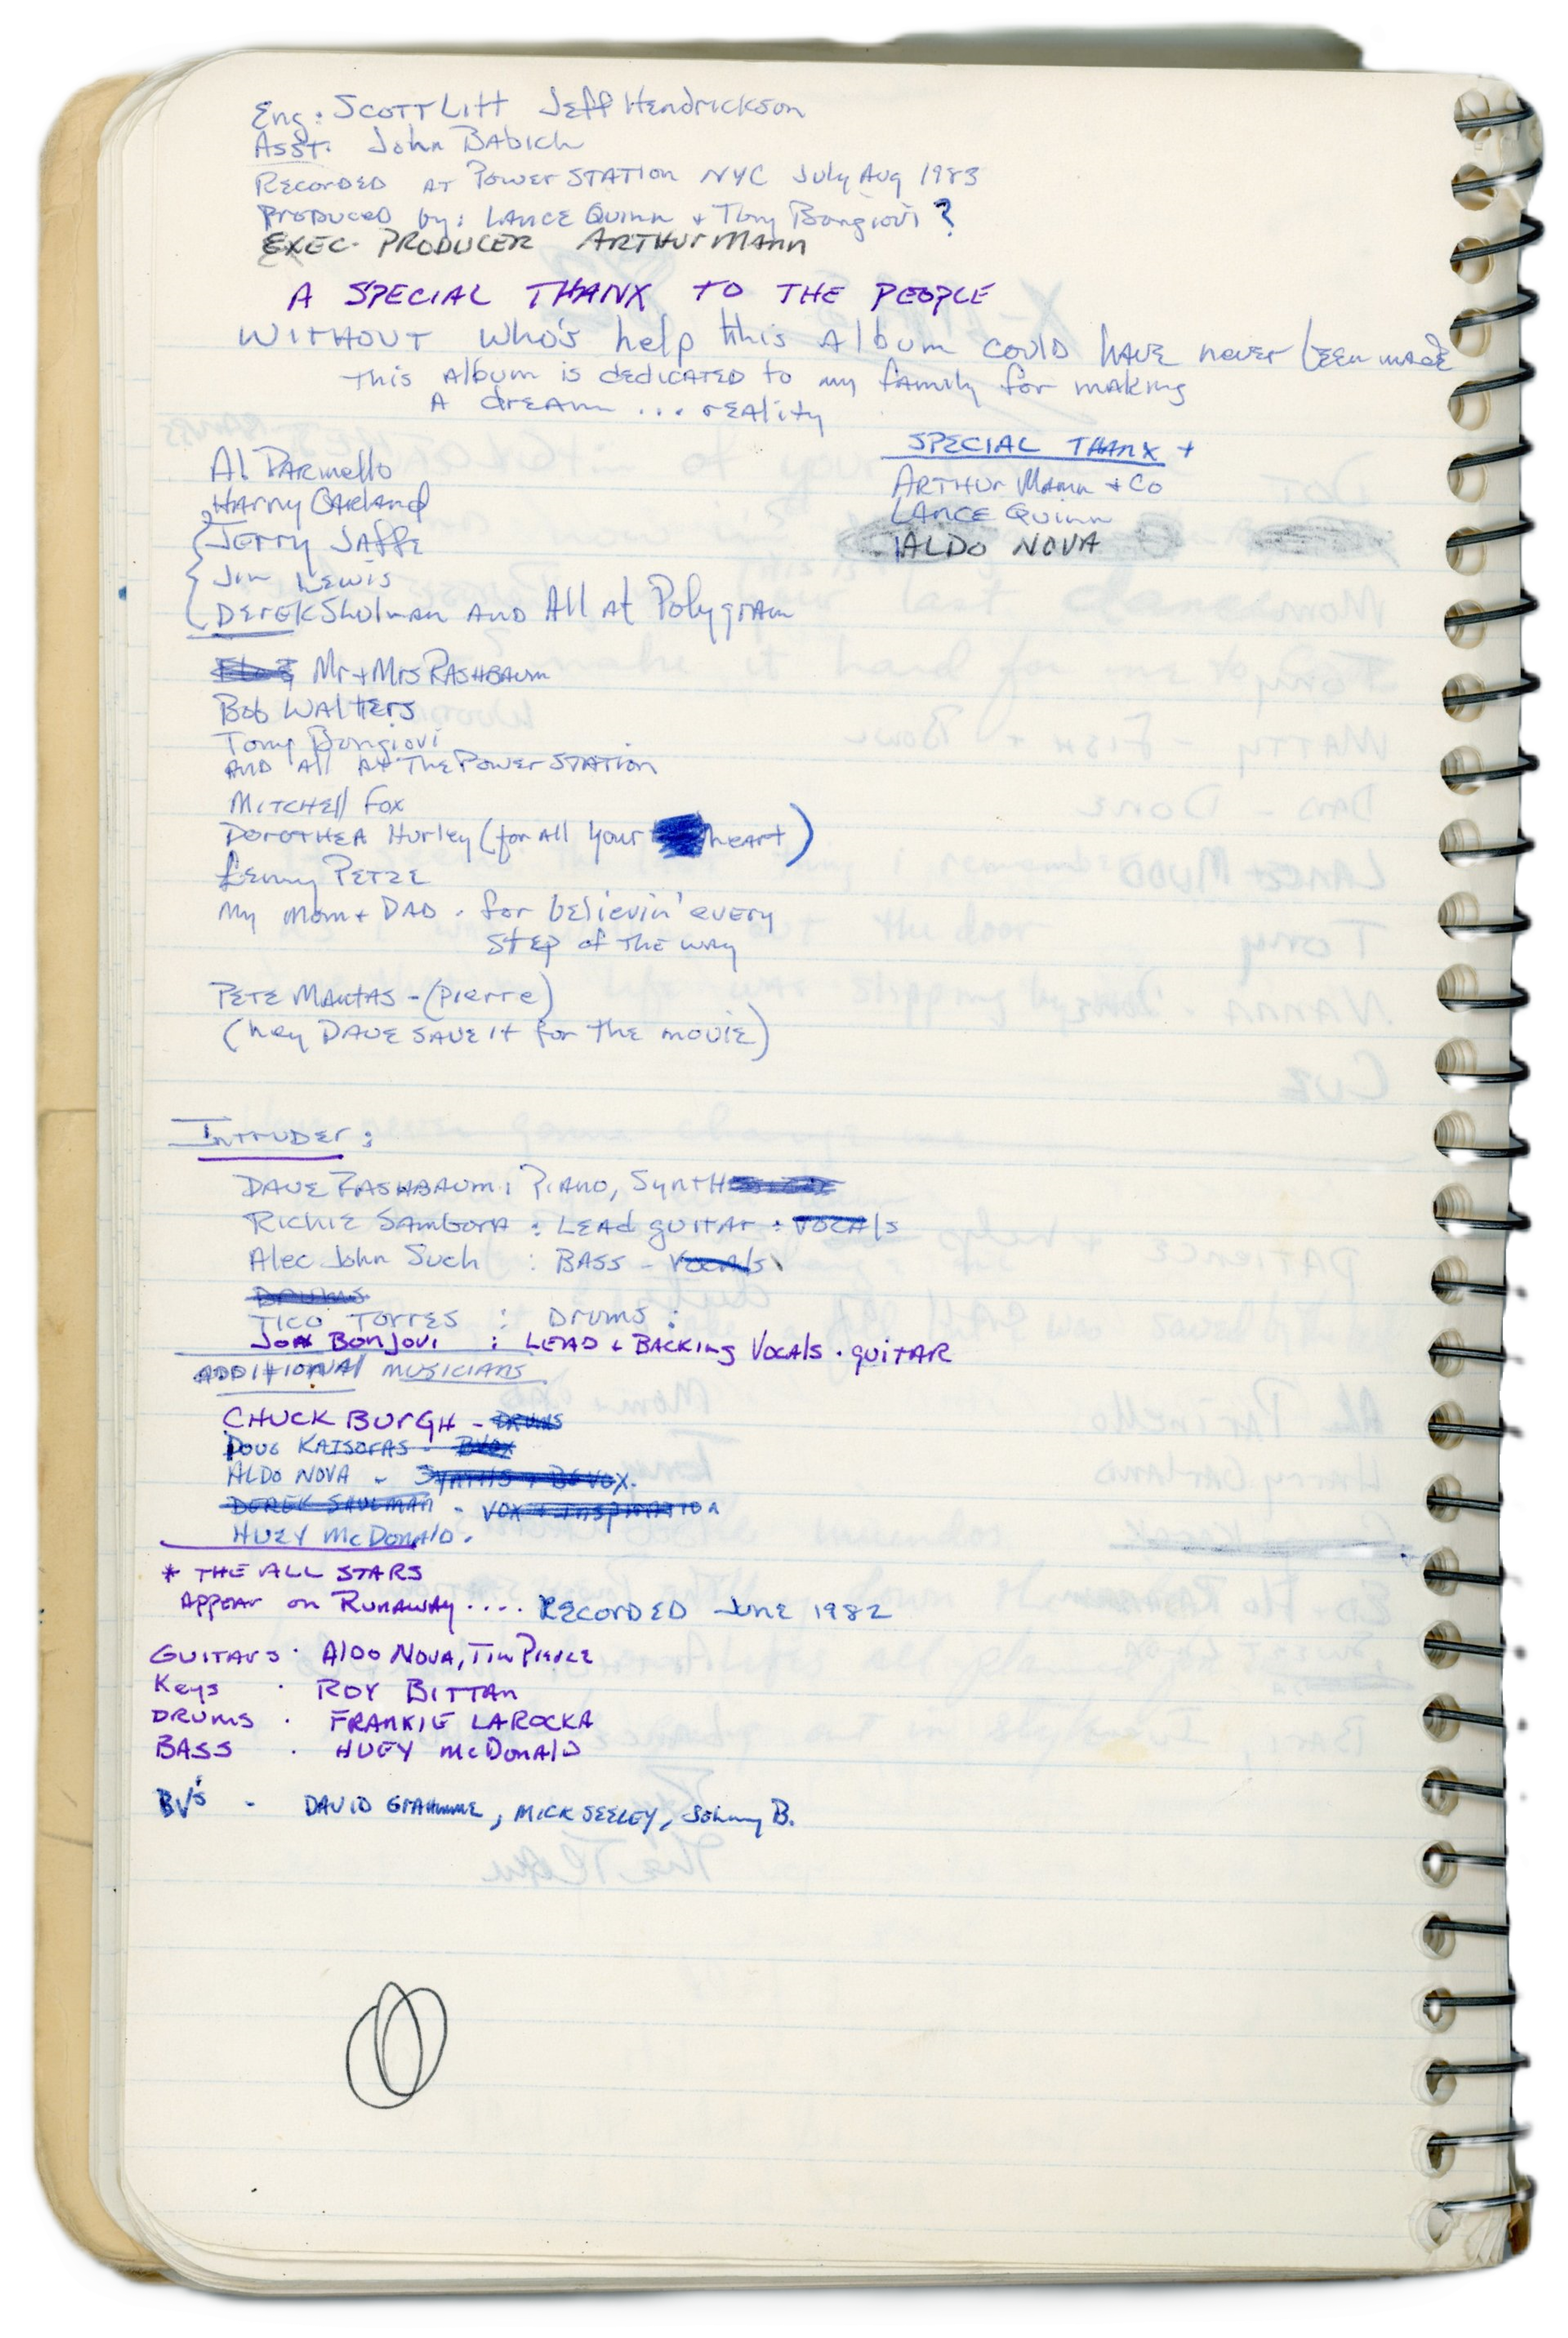 Eng: Scott Litt Jeff Hendrickson
Asst. John Babich
Recorded at Power Station NYC July Aug 1983
Produced by: Lance Quinn + Tony Bongiovi ?
Exec. Producer Arthur Mann
A SPECIAL THANX TO THE PEOPLE
WITHOUT who's help this Album could have never been made
This album is dedicated to my family for making
A dream ... reality
Al Parinello
Harry Garland
Jerry Jaffe
Jim Lewis
Derek Shulman and All at Polygram
SPECIAL THANX +
Arthur Mann + Co
Lance Quinn
ALDO NOVA
Mr + Mrs Rashbaum
Bob Walters
Tony Bongiovi
and all at the Power Station
Mitchell Fox
Dorothea Hurley (for all your heart)
Lenny Petze
My Mom + Dad . for believin' every
step of the way
Pete Mantas - (Pierre)
(hey Dave save it for the movie)
Intruder :
Dave Rashbaum : Piano, Synth
Richie Sambora : Lead guitar : vocals
Alec John Such : Bass - vocals
Drums
Tico Torres : Drums :
Jon Bonjovi : Lead + Backing Vocals . guitar
Additional musicians
CHUCK BURGH - DRUMS
Doug Katsoras - BVox
Aldo Nova - Synths + BG Vox.
Derek Shulman - vox + inspiration
Huey McDonald.
* THE ALL STARS
Appear on Runaway .... Recorded June 1982
Guitars . Aldo Nova, Tim Pierce
Keys . Roy Bittan
Drums . Frankie LaRocka
Bass . Huey McDonald
BV's - David Grahmme, Mick Seeley, Johnny B.